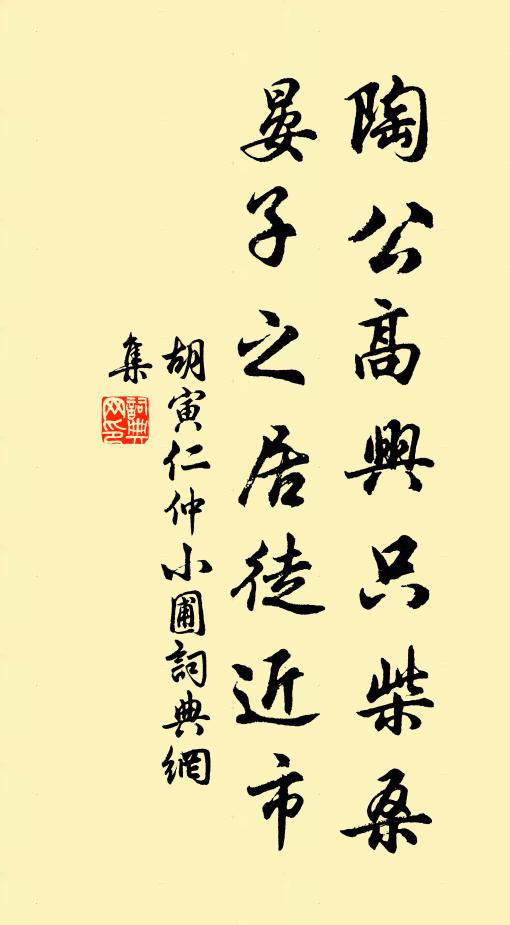 陶公高興只柴桑
晏子之居徒近市
胡寅仁仲小圃詞典網
集
詞典網印